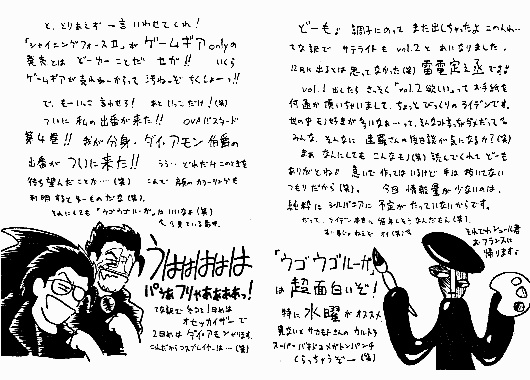 と、とりあえず一言いわせてくれ！
「シャイニングフォースⅡ」がゲームギアonlyの
発売とはどーゆーことだ セガ!! いくら
ゲームギアが売れねーからって汚ねーぞ ちくしょーっ!!
で、もー一言わせろ! あとひとつだけ!(笑)
ついに私の出番が来た!! OVAバスタード
第4巻!! 我が分身・ダイ・アモン伯爵の
出番がついに来た!! うう…どれだけこのときを
待ち望んだことか…(笑) これで顔のカラーリングも
判明するとゆーものだな(笑)。
それにしても「ウゴウゴルーガ」はいいなぁ(笑)
今見ている最中。
うはははははは
パゥあ フリャあああぁっ!
てな訳で冬コミ1日めは
オセッカイザーで
2日めはダイ・アモンやります。
これだからコスプレイヤーは…(笑)
どーも♪ 調子にのってまた出しちゃったよこのんれ…
てな訳でサテライトもvol.2とあいなりました。
12月に出るとは思ってなかった(笑) 雷電定之丞です♪
vol.1出したらさっそく「vol.2欲しい」ってお手紙を
何通か頂いちゃいまして、ちょっとびっくりのライデンです。
みんな、そんなに遠藤さんの後日談が気になるか?(笑)
まあなんにしてもこんなモノ(笑)読んでくれてどーも
ありがとね♪ 急いで作ってはいるけど手は抜いてない
つもりだから(笑)。 今回情報量が少ないのは、
純粋にシルバニアに予定がたっていないからです。
「ウゴウゴルーガ」
は超面白いぞ!
特に水曜がオススメ
見ないとサカモトさんのウルトラ
スーパー
くらっちうぞー(笑)
それでわシェー君
おフランスに
帰ります♪